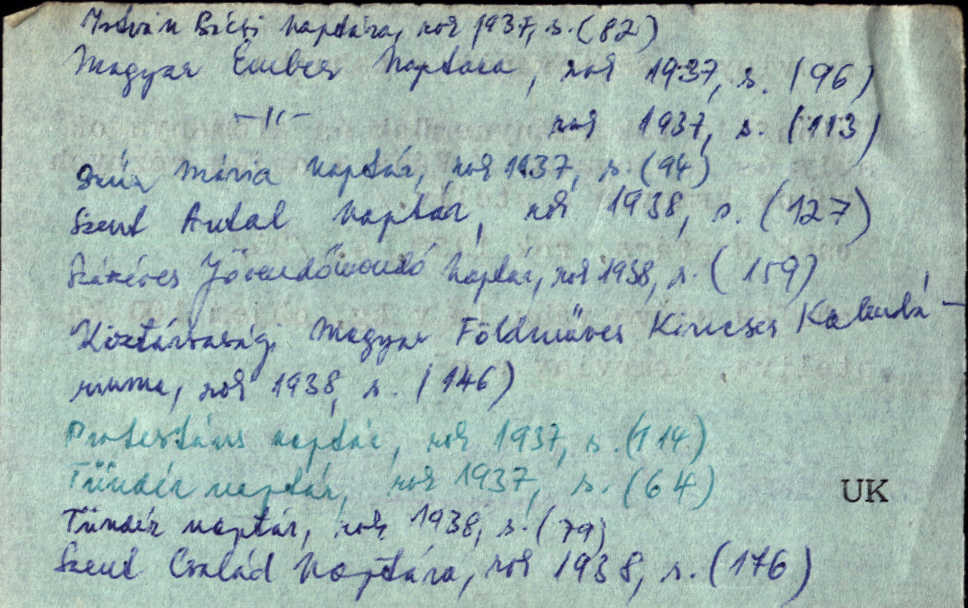 István Bácsi naptára, rok 1937, s. (82)
Magyar Ember Naptára, rok 1937, s. (96)
-"- rok 1937, s. (113)
Szűz Mária naptár, rok 1937, s. (94)
Szent Antal naptár, rok 1938, s. (127)
Százéves Jövendőmondó naptár, rok 1938, s. (159)
Köztársasági Magyar Földműves Kincses Kalendá-
riuma, rok 1938, s. (146)
Protestáns naptár, rok 1937, s. (114)
Tündér naptár, rok 1937, s. (64)
UK
Tündér naptár, rok 1938, s. (79)
Szent Család Naptára, rok 1938, s. (176)